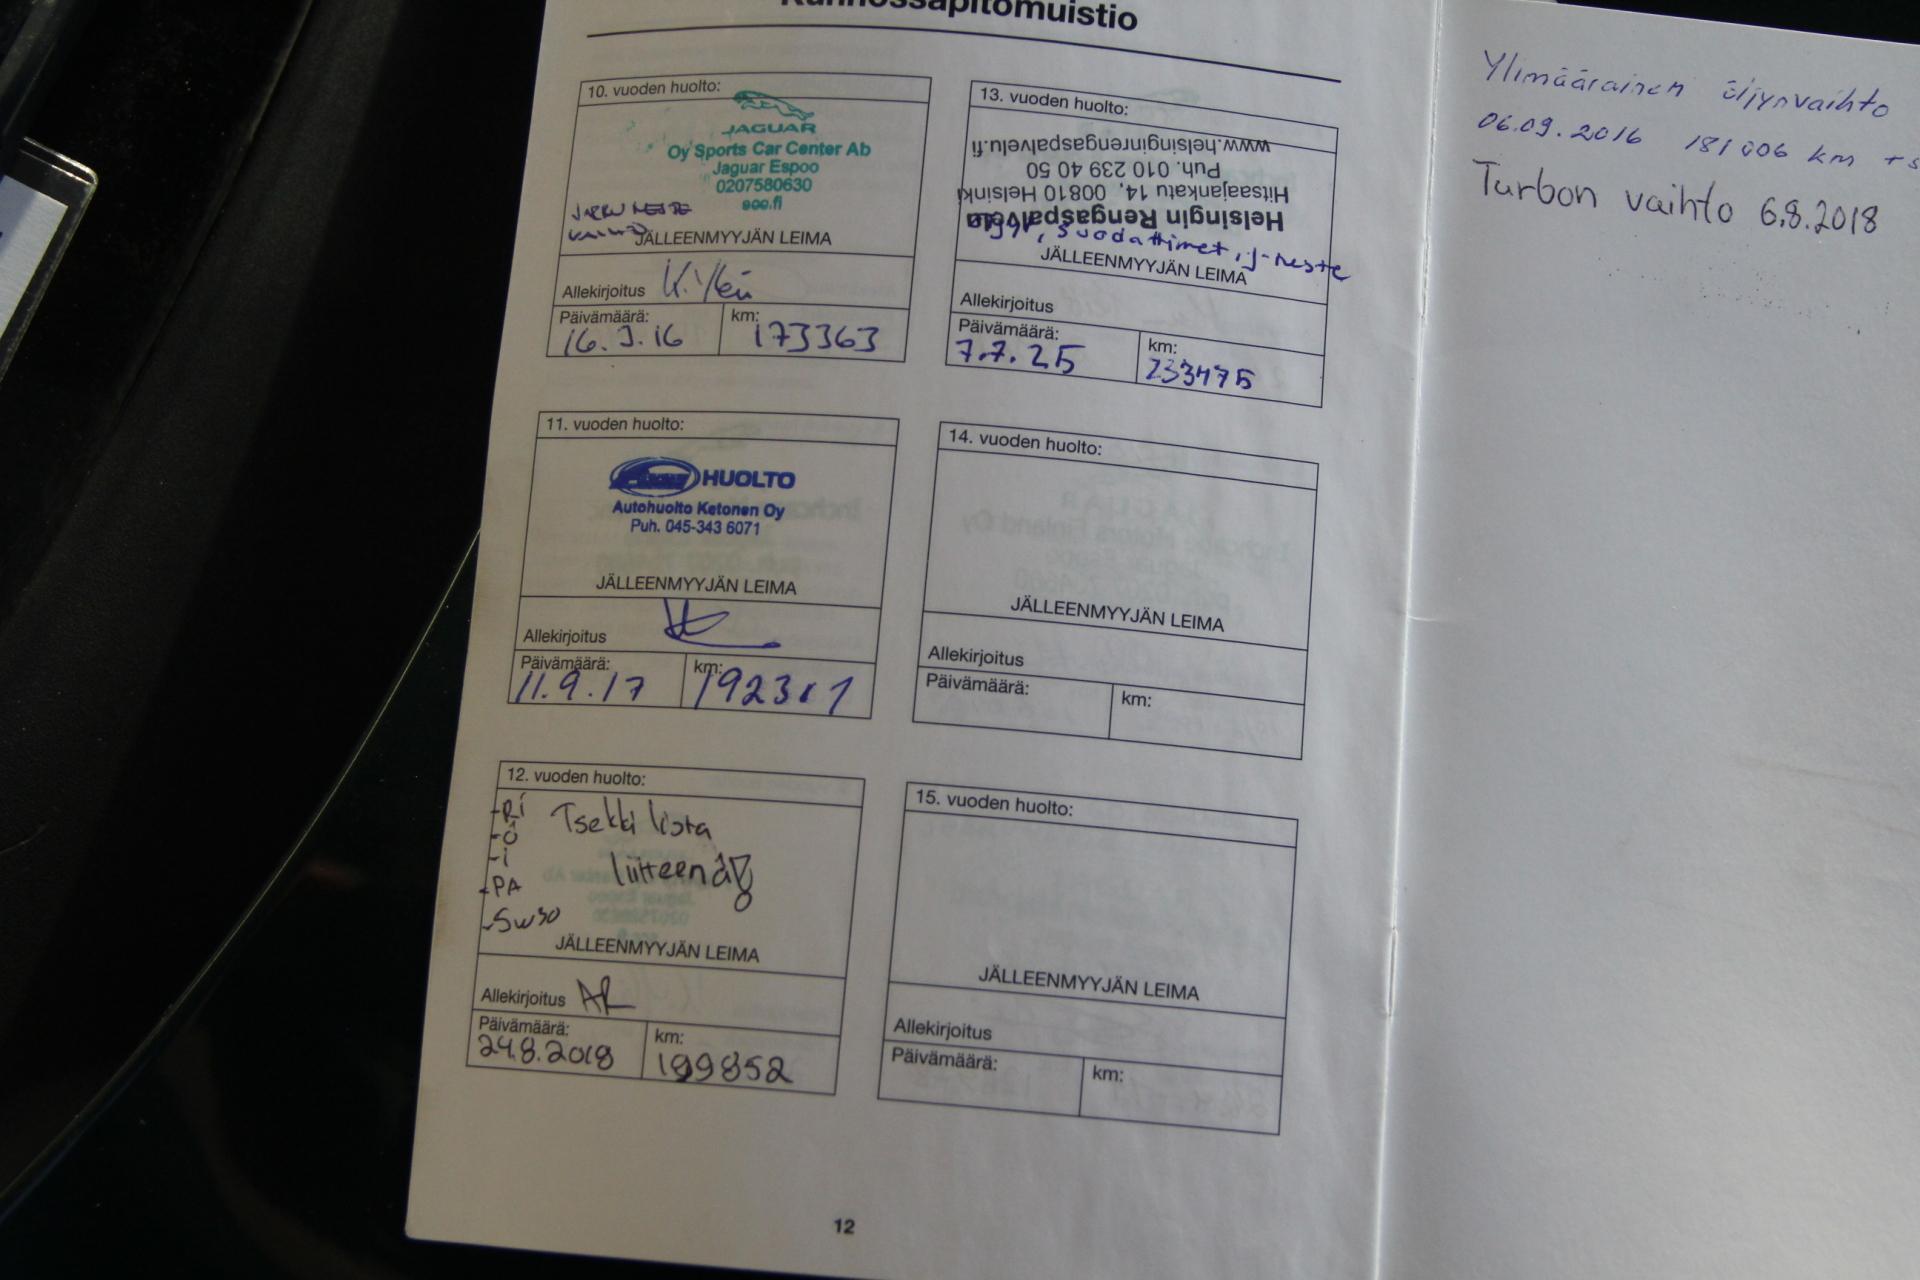 Kunnossapitomuistio
10. vuoden huolto:
JAGUAR
Oy Sports Car Center Ab
Jaguar Espoo
0207580630
scc.fi
JARRU NESTE
VAIHTO
JÄLLEENMYYJÄN LEIMA
Allekirjoitus
Päivämäärä:
16.3.16
km:
173363
11. vuoden huolto:
HUOLTO
Autohuolto Ketonen Oy
Puh. 045-343 6071
JÄLLEENMYYJÄN LEIMA
Allekirjoitus
Päivämäärä:
11.9.17
km:
192311
12. vuoden huolto:
-Ri
-Ö
-i
-PA
-5w30
Tsekki lista
liitteenä!
JÄLLEENMYYJÄN LEIMA
Allekirjoitus AR
Päivämäärä:
24.8.2018
km:
199852
13. vuoden huolto:
Helsingin Rengaspalvelu
Hitsaajankatu 14, 00810 Helsinki
Puh. 010 239 40 50
www.helsinginrengaspalvelu.fi
öljyt, suodattimet, j-neste
JÄLLEENMYYJÄN LEIMA
Allekirjoitus
Päivämäärä:
7.7.25
km:
233475
14. vuoden huolto:
JÄLLEENMYYJÄN LEIMA
Allekirjoitus
Päivämäärä:
km:
15. vuoden huolto:
JÄLLEENMYYJÄN LEIMA
Allekirjoitus
Päivämäärä:
km:
12
Ylimääräinen öljynvaihto
06.09.2016 181006 km + s
Turbon vaihto 6.8.2018